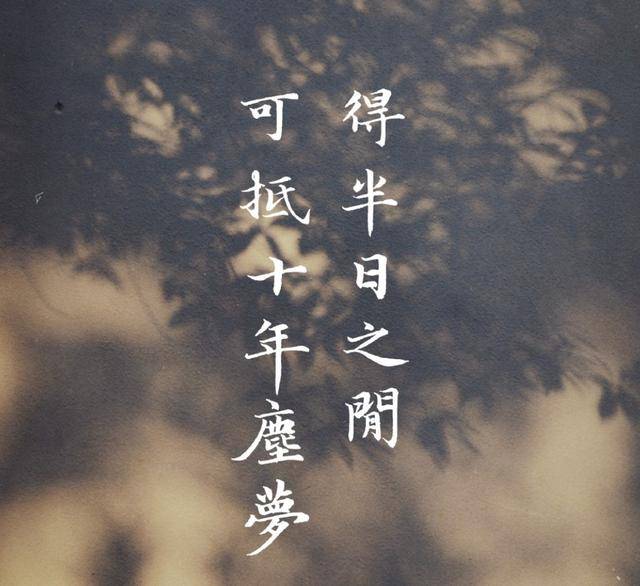 得半日之閒
可抵十年塵夢